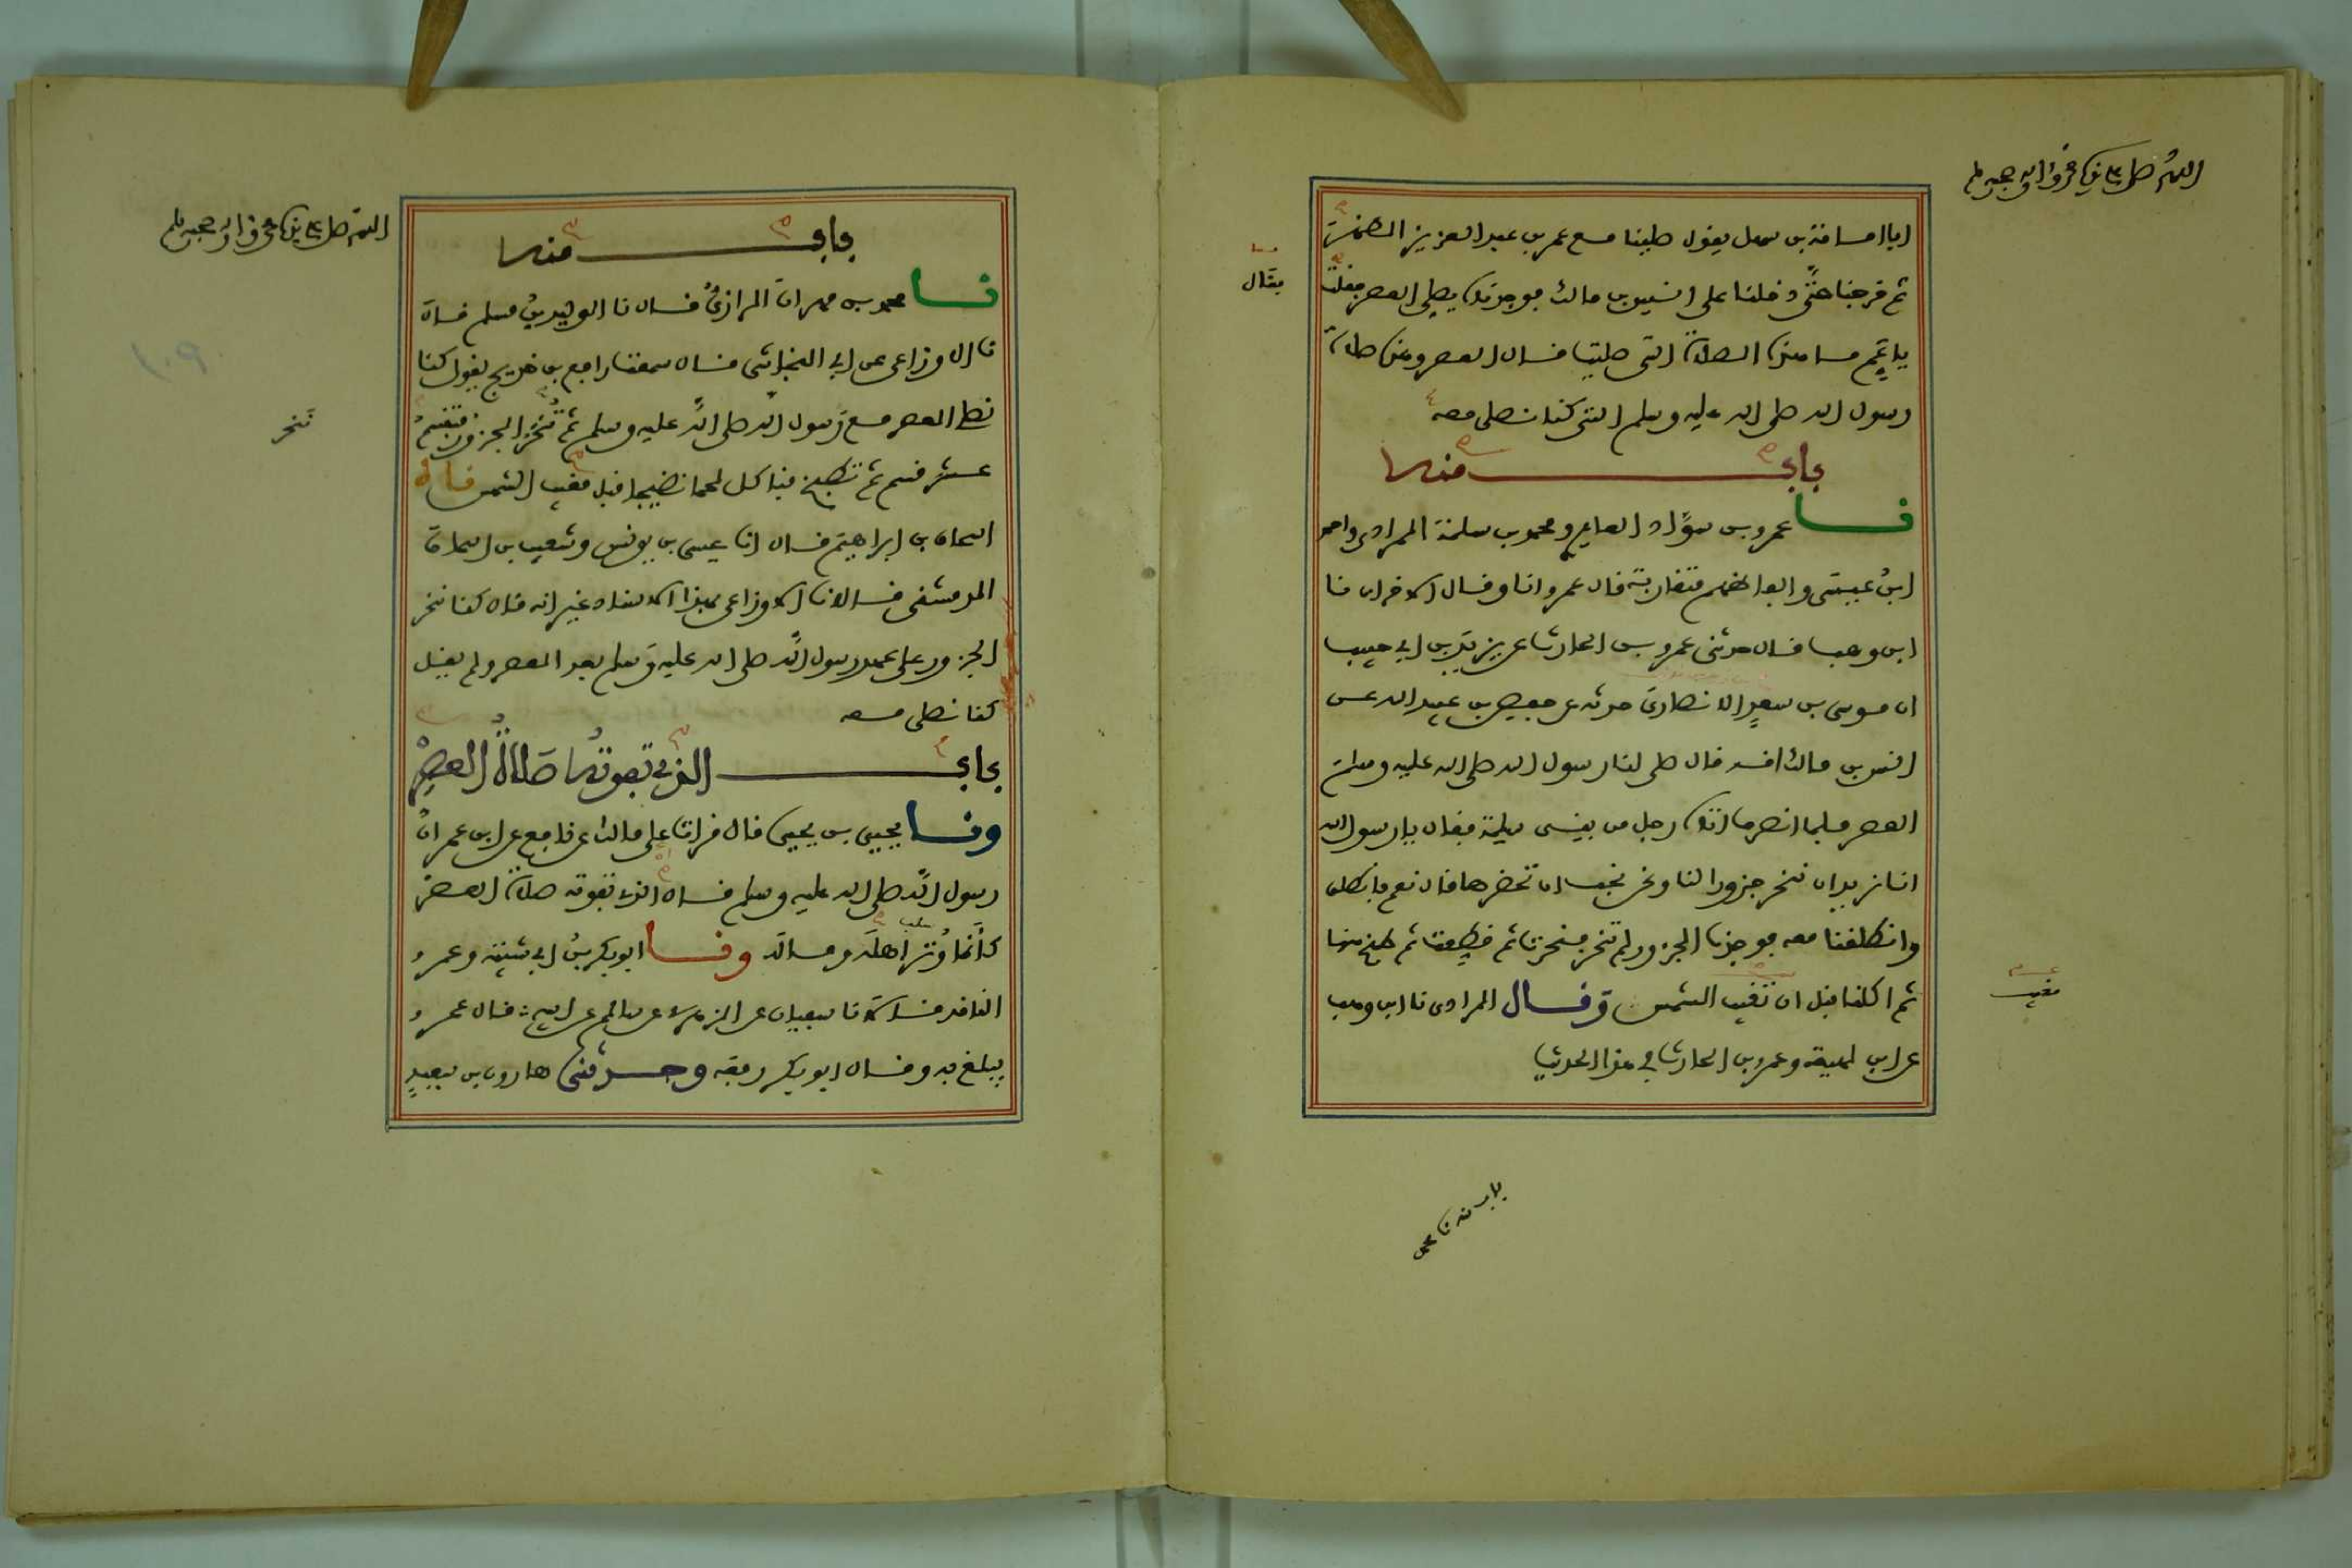 اللهم صل على سيدنا محمد وآله وصحبه وسلم
ابا امامة بن سهل يقول صلينا مع عمر بن عبد العزيز الظهر
ثم خرجنا حتى دخلنا على انس بن مالك فوجدناه يصلي العصر فقلت
يقال
يا عم ما هذه الصلاة التي صليت قال العصر وهذه صلاة
رسول الله صلى الله عليه وسلم التي كنا نصلي معه
باب منه
نا عمرو بن سواد العامري ومحمد بن سلمة المرادي واحمد
ابن عيسى والفاظهم متقاربة قال عمرو انا وقال الاخران نا
ابن وهب قال حدثني عمرو بن الحارث عن يزيد بن ابي حبيب
ان موسى بن سعد الانصاري حدثه عن حفص بن عبيد الله عن
انس بن مالك انه قال صلى لنا رسول الله صلى الله عليه وسلم
العصر فلما انصرف اتاه رجل من بني سلمة فقال يا رسول الله
انا نريد ان ننحر جزورا لنا ونحن نحب ان تحضرها قال نعم فانطلق
وانطلقنا معه فوجدنا الجزور لم تنحر فنحرت ثم قطعت ثم طبخ منها
ثم اكلنا قبل ان تغيب الشمس وقال المرادي نا ابن وهب
مغيب
عن ابن لهيعة وعمرو بن الحارث في هذا الحديث
باب منه نا محمد
اللهم صل على سيدنا محمد وآله وصحبه وسلم
باب منه
نا محمد بن مهران الرازي قال نا الوليد بن مسلم قال
نا الاوزاعي عن ابي النجاشي قال سمعت رافع بن خديج يقول كنا
نصلي العصر مع رسول الله صلى الله عليه وسلم ثم تنحر الجزور فتقسم
ننحر
عشر قسم ثم تطبخ فناكل لحما نضيجا قبل مغيب الشمس قال
اسحاق بن ابراهيم قال انا عيسى بن يونس وشعيب بن اسحاق
الدمشقي قالا نا الاوزاعي بهذا الاسناد غير انه قال كنا ننحر
الجزور على عهد رسول الله صلى الله عليه وسلم بعد العصر ولم يقل
كنا نصلي معه
باب الذي تفوته صلاة العصر
ونا يحيى بن يحيى قال قرات على مالك عن نافع عن ابن عمر ان
رسول الله صلى الله عليه وسلم قال الذي تفوته صلاة العصر
كأنما وتر اهله وماله ونا ابو بكر بن ابي شيبة وعمرو
الناقد قالا نا سفيان عن الزهري عن سالم عن ابيه قال عمرو
يبلغ به وقال ابو بكر رفعه وحدثني هارون بن سعيد